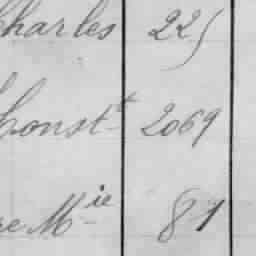 Charles 225
Const.t 2069
re M.ie 81